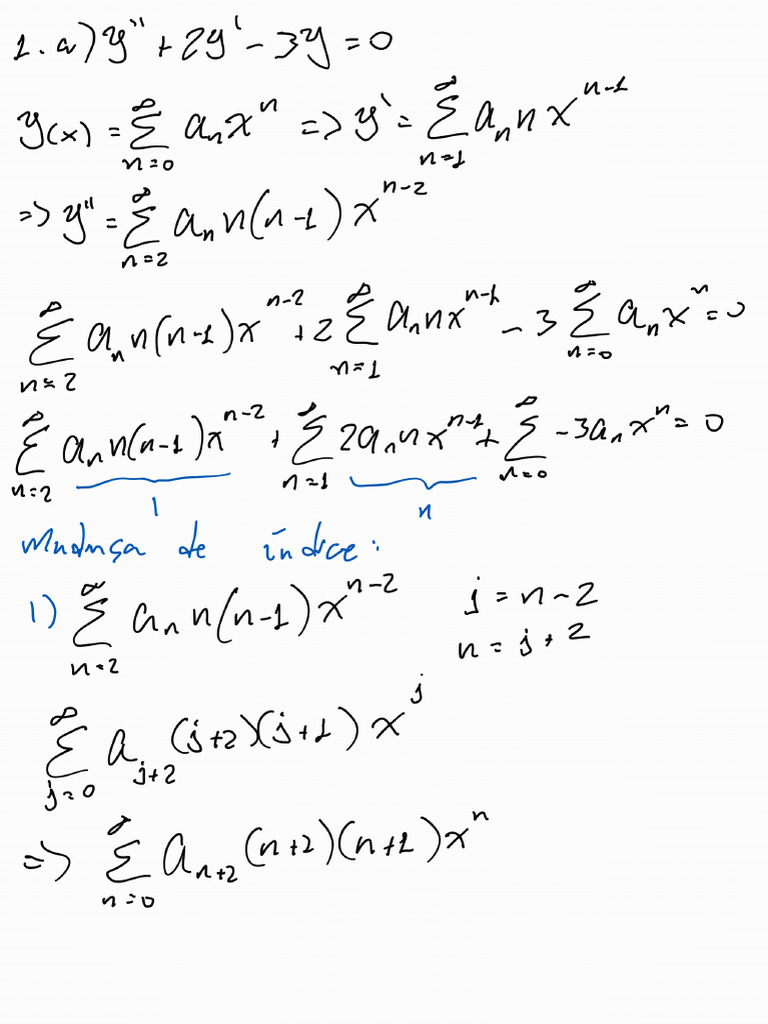 1. a) y'' + 2y' - 3y = 0
y(x) = ∑_{n=0}^{∞} a_n x^n => y' = ∑_{n=1}^{∞} a_n n x^{n-1}
=> y'' = ∑_{n=2}^{∞} a_n n(n-1) x^{n-2}
∑_{n=2}^{∞} a_n n(n-1) x^{n-2} + 2 ∑_{n=1}^{∞} a_n n x^{n-1} - 3 ∑_{n=0}^{∞} a_n x^n = 0
∑_{n=2}^{∞} a_n n(n-1) x^{n-2} + ∑_{n=1}^{∞} 2a_n n x^{n-1} + ∑_{n=0}^{∞} -3a_n x^n = 0
I II
Mudança de índice:
1) ∑_{n=2}^{∞} a_n n(n-1) x^{n-2} j = n-2
n = j+2
∑_{j=0}^{∞} a_{j+2} (j+2)(j+1) x^j
=> ∑_{n=0}^{∞} a_{n+2} (n+2)(n+1) x^n